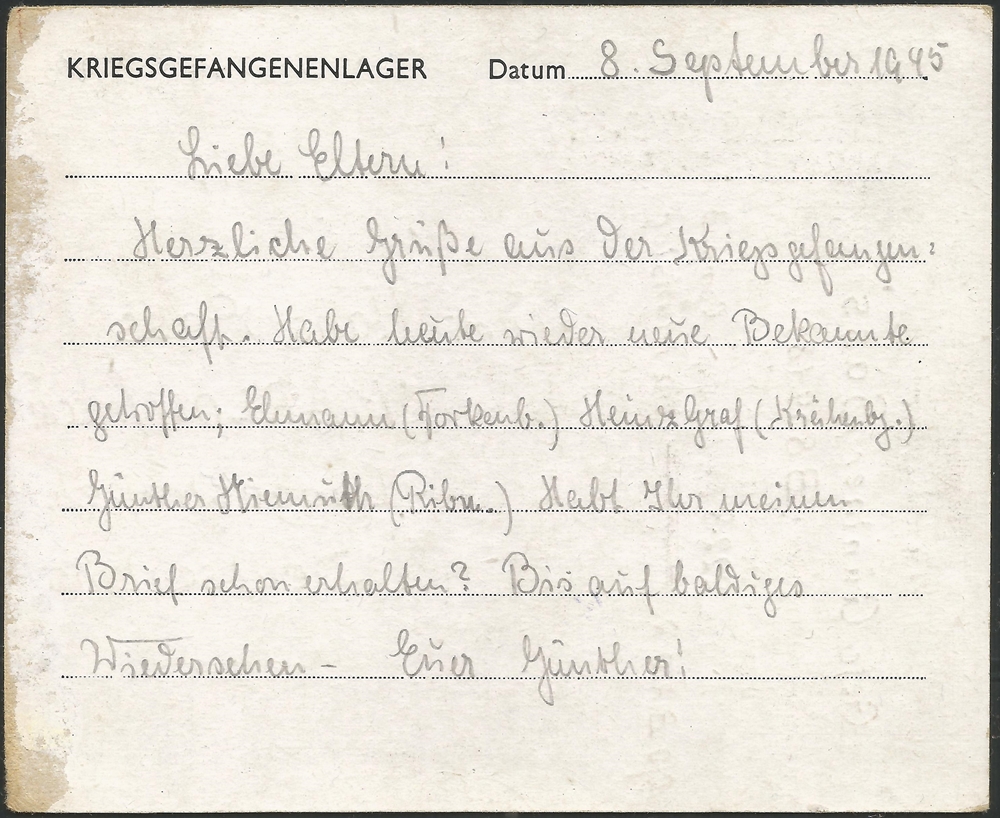 KRIEGSGEFANGENENLAGER Datum 8. September 1945
Liebe Eltern!
Herzliche Grüße aus der Kriegsgefangen=
schaft. Habe heute wieder neue Bekannte
getroffen; Ehmann (Forkenb.) Heinz Graf (Krähenbg.)
Günther (Ribn.) Habt Ihr meinen
Brief schon erhalten? Bis auf baldiges
Wiedersehen - Euer Günther!